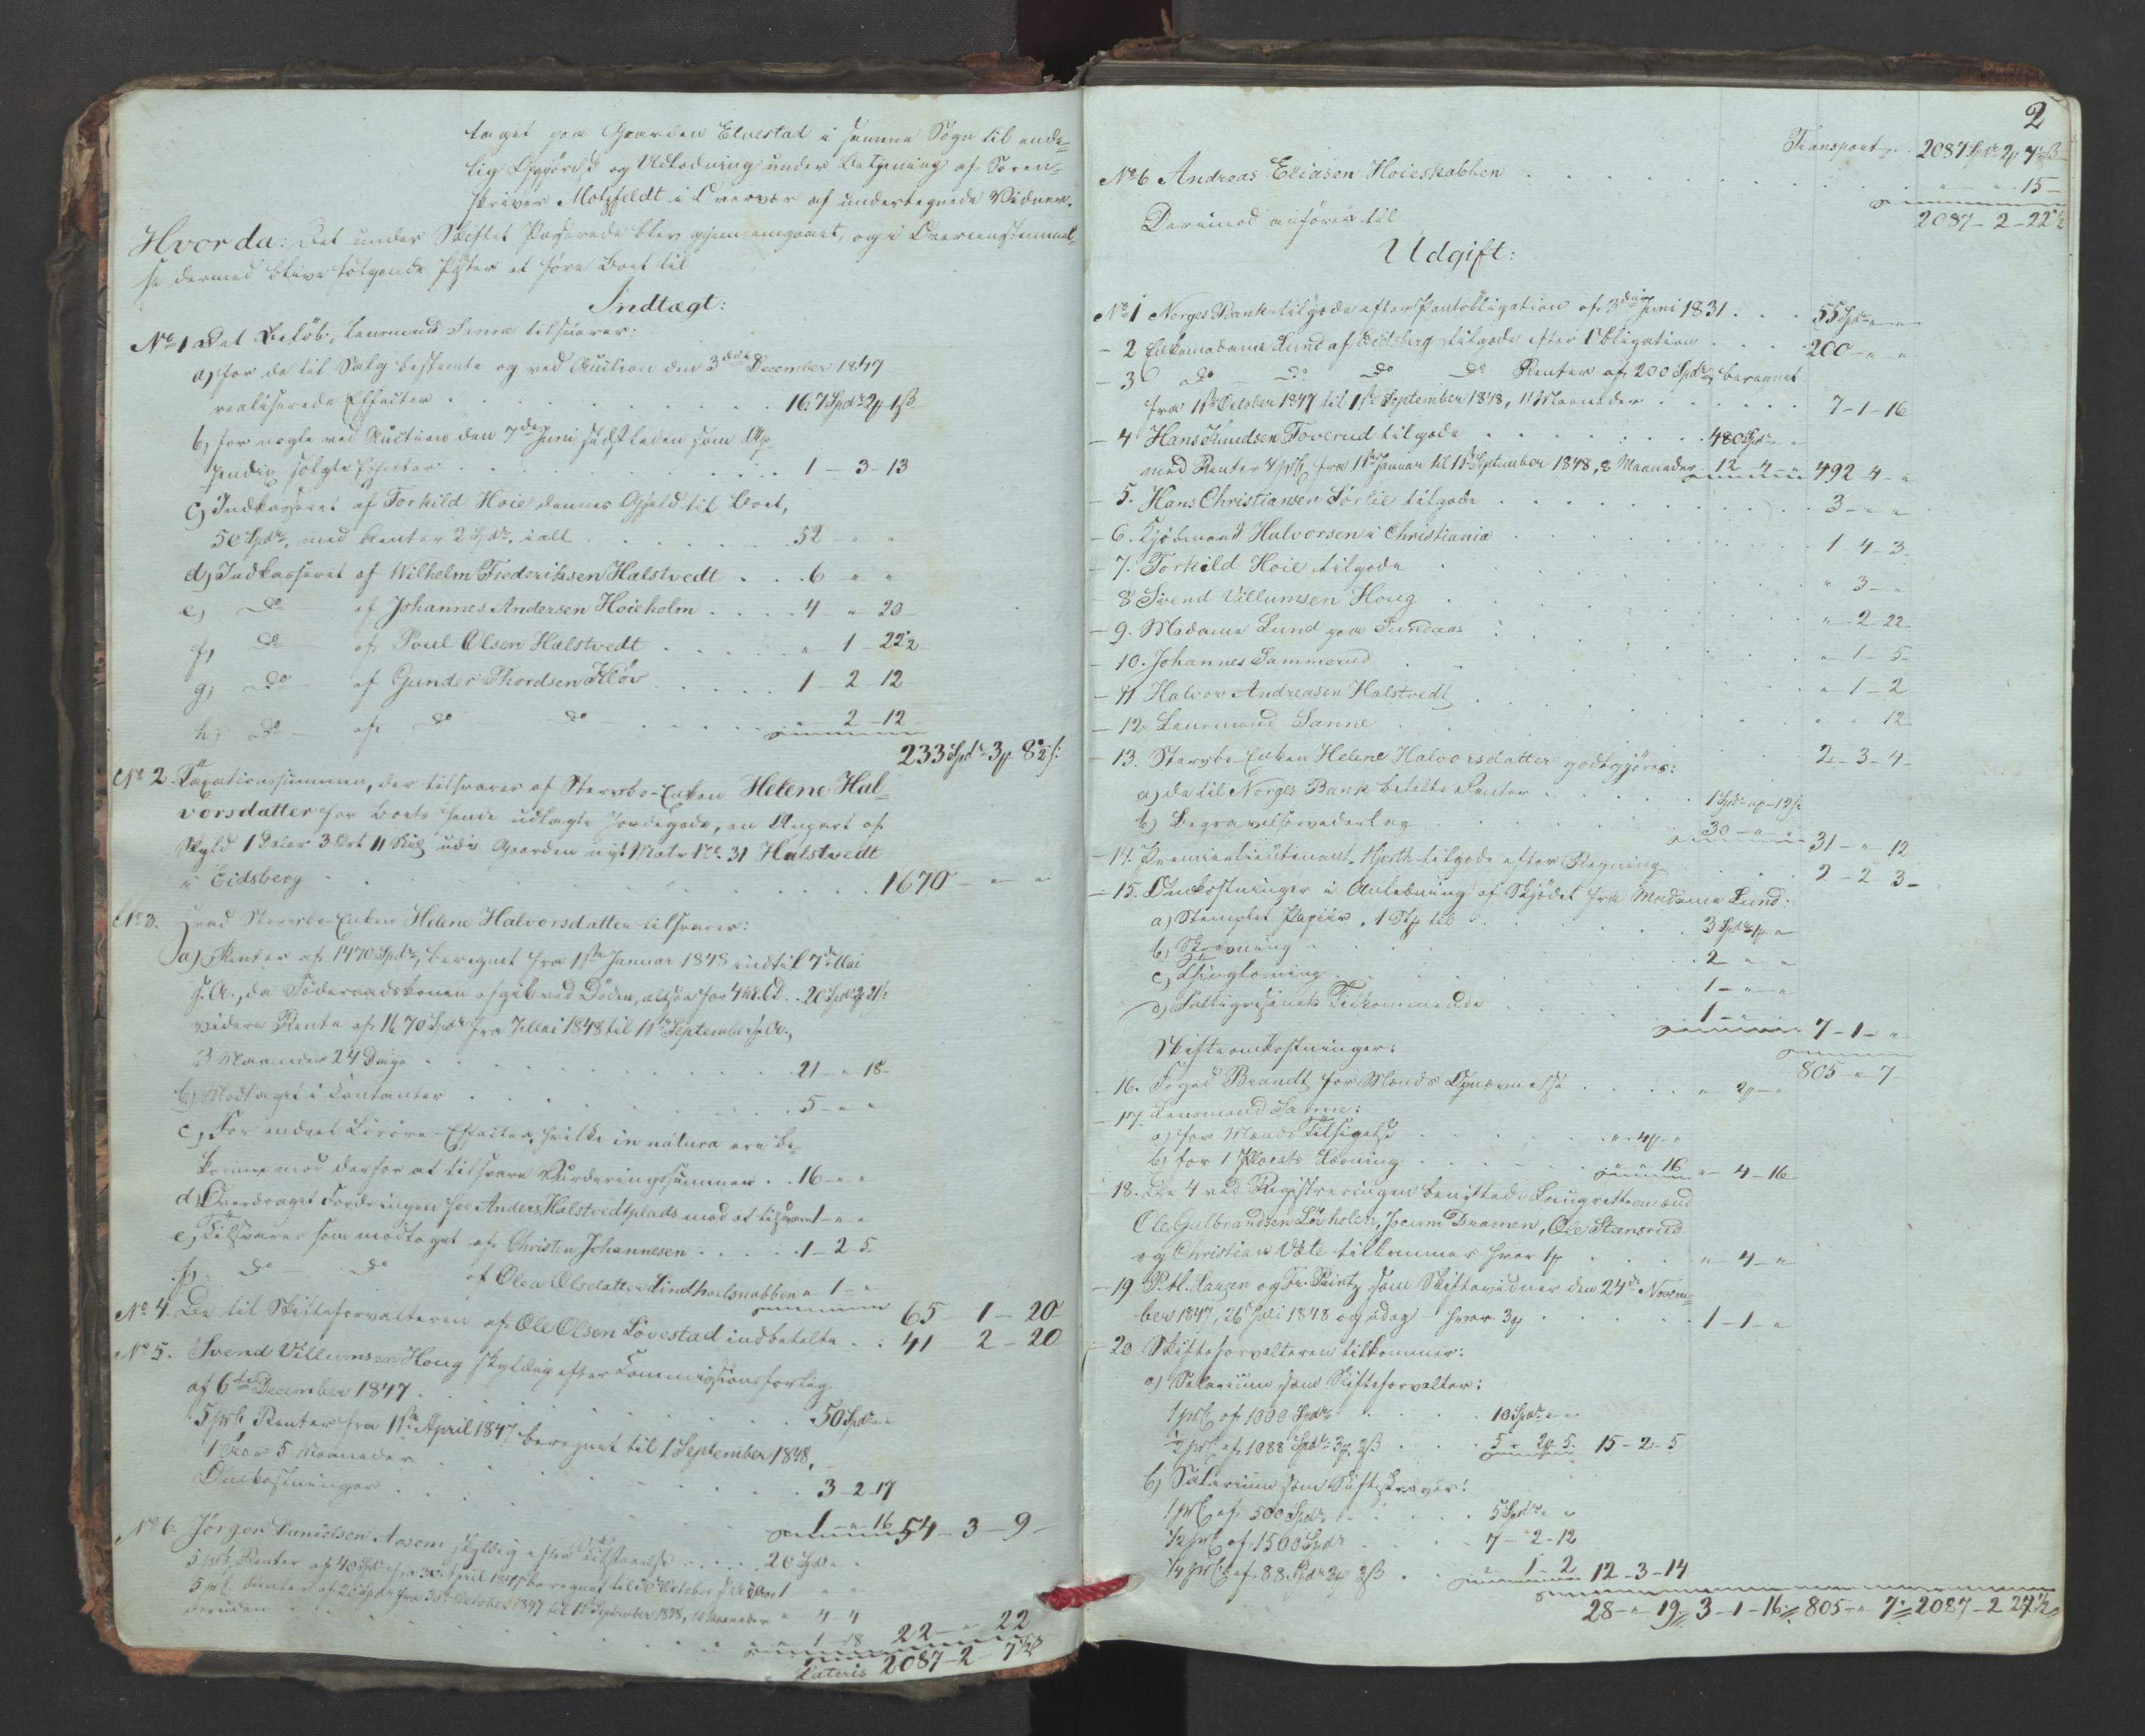 taget paa Gaarden Elvestad i samme Sogn til ende-
lig Opgjørelse og Udlodning under Betjening af Soren-
skriver Motzfeldt i Overvær af undertegnede Vidner.
Hvorda: Det under Skiftet Passerede blev gjennemgaaet, og i Overensstemmel-
se dermed blive følgende Poster at føre Boet til
Indtægt:
No 1 Det Beløb, Lensmand Sanne tilsvarer:
a) for de til Salg bestemte og ved Auction den 3die December 1847
realiserede Effecter . . . 167 Spdr 2 ₰ 1 ß
b, for nogle ved Auction den 7de Juni sidstleden som Ap-
pendix solgte Effecter . . . 1 - 3 - 13
c) Indkasseret af Torkild Hoie dennes Gjeld til Boet,
50 Spdr, med Renter 2 Spdr, ialt . . . 52 - " "
d) Indkasseret af Wilhelm Frederiksen Halstvedt . . . 6 " "
e) do af Johannes Andersen Hoieholm . . . 4 " 20
f, do af Poul Olsen Halstvedt . . . " 1 - 22½
g) do af Gunder Thordsen Kløv . . . 1 - 2 - 12
h) do af do do . . . 2 - 12
233 Spdr 3 ₰ 8½ ß
No 2. Taxationssummen, der tilsvares af Stervbo-Enken Helene Hal-
vorsdatter for Boets hende udlagte Jordegods, en Anpart af
Skyld 1 Daler 3 Ort 11 Skil udi Gaarden nyt Matr. No. 31 Halstvedt
i Eidsberg . . . 1670 - " - "
No 3. Hvad Stervbo-Enken Helene Halvorsdatter tilsvarer:
a) Renter af 1470 Spdr, beregnet fra 1ste Januar 1848 indtil 7de Mai
s. A., da Føderaadskonen afgik ved Døden, altsaa for 4 M. 6 D. . . 20 Spdr 2 ₰ 21 ß
videre Rente af 1670 Spdr fra 7 Mai 1848 til 1ste September s. A.,
3 Maaneder 24 Dage . . . 21 - " 18 -
b) Modtaget i Contanter . . . 5 - " "
c, For endeel Løsøre-Effecter, hvilke in natura ere be-
komne mod derfor at tilsvare Vurderingssummen . . 16 - " "
d) Overdraget Fordringen hos Anders Halstvedtplads mod at tilsvare 1 - " "
e, Tilsvarer som modtaget af Christen Johannesen . . . 1 - 2 - 5
f) do do af Olea Olsdatter Lindholsnabben " 1 - "
65 - 1 - 20
No 4. De til Skifteforvalteren af Ole Olsen Løvestad indbetalte . . 41 - 2 - 20
No 5. Svend Villumsen Houg skyldig efter Commissionsforlig
af 6te December 1847 . . . 50 Spdr " "
5 prC. Renter fra 1ste April 1847 beregnet til 1 September 1848,
1 Aar 5 Maaneder . . . 3 - 2 - 17
Omkostninger . . . 1 - " 16 54 - 3 - 9 -
No 6. Jørgen Danielsen Aasem skyldig efter Tilstaaelse . . . 20 Spdr " "
5 prC. Renter af 40 Spdr fra 30te April 1847 beregnet til 30 October s. A. 1 " "
5 prC. Renter af 20 Spdr fra 30te October 1847 til 1ste September 1848, 10 Maaneder " 4 - 4
desuden . . . " 1 - 18 22 - " 22
Lateris 2087 - 2 - 7½ ß
2
Transport . . 2087 Spdr 2 ₰ 7½ ß
No 6 Andreas Eliasen Hoieskabben . . . " - " . 15 -
2087 - 2 - 22½
Derimod anføres til
Udgift:
No 1 Norges Bank tilgode efter Pantobligation af 3die Juni 1831 . . . 55 Spdr " "
- 2 Enkemadame Lund af Eidsberg tilgode efter Obligation . . . 200 - " "
- 3 do do do do Renter af 200 Spdr, beregnet
fra 1ste October 1847 til 1ste September 1848, 11 Maaneder . . . 7 - 1 - 16
- 4 Hans Knudsen Foverud tilgode . . . 480 Spdr " "
med Renter 4 prC. fra 1ste Januar til 1ste September 1848, 8 Maaneder 12 - 4 - " 492 4 - "
- 5. Hans Christiansen Sørlie tilgode . . . 3 - " "
- 6. Kjøbmand Halvorsen i Christiania . . . 1 - 4 - 3 -
- 7. Torkild Hoie tilgode . . . " 3 - "
- 8 Svend Villumsen Houg . . . " 2 - 22 -
- 9. Madame Lund paa Sundaas . . . " - 1 - 5 -
- 10. Johannes Sammerud . . . " 1 - 2
- 11 Halvor Andreasen Halstvedt . . . " " 12
- 12. Lensmand Sanne . . . 2 - 3 - 4 -
- 13. Stervbo-Enken Helene Halvorsdatter godtgjøres:
a) de til Norges Bank betalte Renter . . . 1 Spdr " ₰ - 12 ß
b) Begravelsesvederlag . . . 30 - " - " 31 - " 12
- 14. Premierlieutenant Hjorth tilgode efter Regning . . . 2 - 2 - 3 -
- 15. Omkostninger i Anledning af Skjødet fra Madame Lund:
a) Stemplet Papiir, 1 Stk til . . . 3 Spdr 1 ₰ "
b) Skrivning . . . 2 " "
c) Thinglæsning . . . 1 - " - "
d) Fattigvæsenets Tilkommende . . . 1 - " - 7 - 1 - "
805 - " 7
Skifteomkostninger:
- 16. Foged Brandt for Mænds Opnævnelse . . . " 2 ₰ - "
- 17. Lensmand Sanne:
a) for Mænds Tilsigelse . . . " 4 ₰ - "
b, for 1 Placats Læsning . . . " " 16 " - 4 - 16
- 18. De 4 ved Registreringen benyttede Laugrettesmænd
Ole Gulbrandsen Løvholen, Joerm Dramen, Ole Steensrud
og Christian Væte tilkommer hver 1 ₰ . . . " - 4 - "
- 19 P. H. Hansen og Fr. Reintz som Skiftevidner den 24de Novem-
ber 1847, 26 Juli 1848 og idag - hver 3 ₰ . . . 1 - 1 - "
- 20 Skifteforvalteren tilkommer:
a) Salarium som Skifteforvalter:
1 prC. af 1000 Spdr . . . 10 Spdr " "
½ prC. af 1088 Spdr 3 ₰ 2 ß . . . 5 - 2 ₰ 5. 15 - 2 - 5
b) Salarium som Skifteskriver:
1 prC. af 500 Spdr . . . 5 Spdr " "
½ prC. af 1500 Spdr . . . 7 - 2 - 12
¼ prC. af 88 Spdr 3 ₰ 2 ß . . . 1 - 2 12 - 3 - 14
28 - " 19. 3 - 1 - 16. 805 - " 7. 2087 - 2 22½